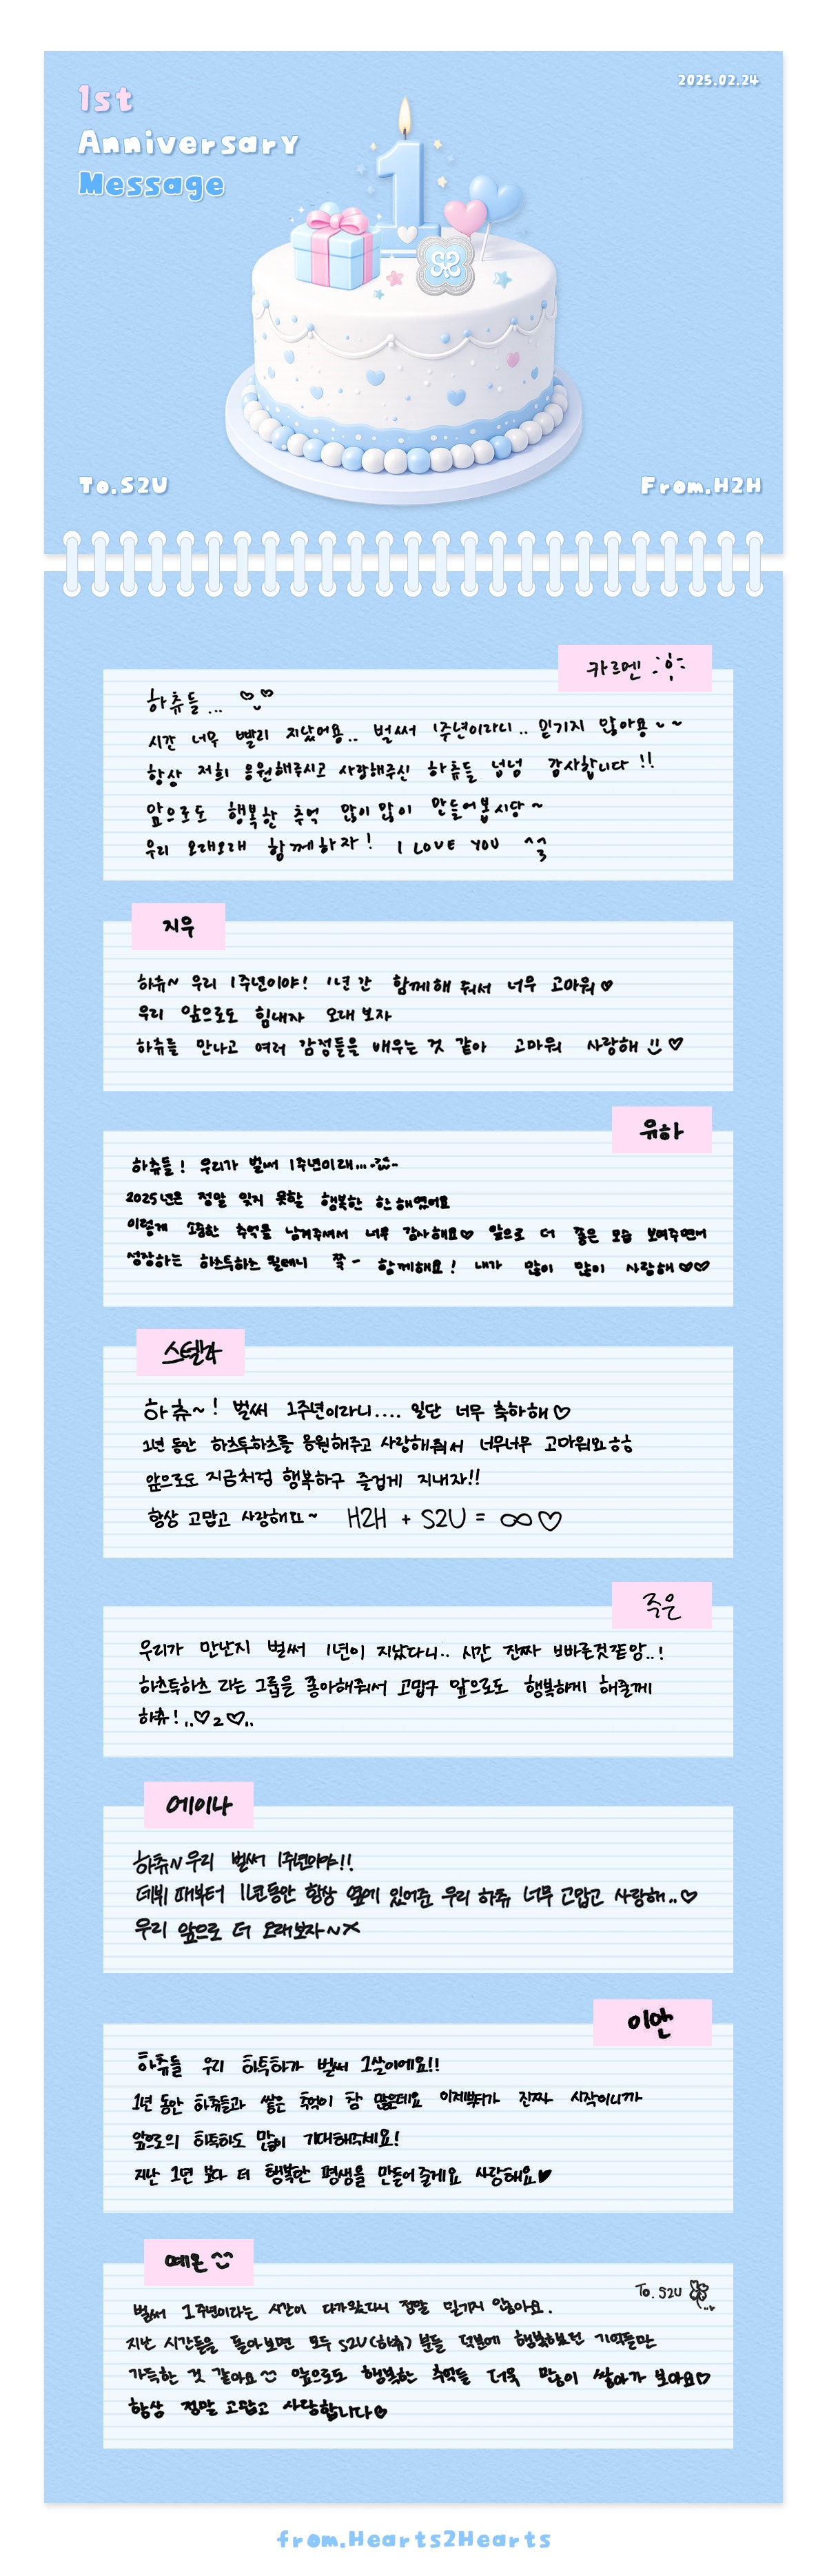 1st
Anniversary
Message
2025.02.24
1
To.S2U
From.H2H
카르멘
하츄들...
시간 너무 빨리 지났어용.. 벌써 1주년이라니.. 믿기지 않아용~~
항상 저희 응원해주시고 사랑해주신 하츄들 넘넘 감사합니다!!
앞으로도 행복한 추억 많이 많이 만들어봅시당~
우리 오래오래 함께하자! I LOVE YOU ^3^
지우
하츄~ 우리 1주년이야! 1년 간 함께해 줘서 너무 고마워♡
우리 앞으로도 힘내자 오래 보자
하츄를 만나고 여러 감정들을 배우는 것 같아 고마워 사랑해 ♡
유하
하츄들! 우리가 벌써 1주년이래...
2025년은 정말 잊지 못할 행복한 한 해였어요
이렇게 소중한 추억을 남겨주셔서 너무 감사해요♡ 앞으로 더 좋은 모습 보여주면서
성장하는 하츠투하츠 될테니 쭉- 함께해요! 내가 많이 많이 사랑해♡♡
스텔라
하츄~! 벌써 1주년이라니.... 일단 너무 축하해♡
1년 동안 하츠투하츠를 응원해주고 사랑해줘서 너무너무 고마워요ㅎㅎ
앞으로도 지금처럼 행복하구 즐겁게 지내자!!
항상 고맙고 사랑해요~ H2H + S2U = ∞♡
주은
우리가 만난지 벌써 1년이 지났다니.. 시간 진짜 빠른것같앙..!
하츠투하츠 라는 그룹을 좋아해줘서 고맙구 앞으로도 행복하게 해줄께
하츄!..♡2♡..
에이나
하츄~우리 벌써 1주년이야!!
데뷔 때부터 1년동안 항상 옆에 있어준 우리 하츄 너무 고맙고 사랑해..♡
우리 앞으로 더 오래보자~×
이안
하츄들 우리 하투하가 벌써 1살이에요!!
1년 동안 하츄들과 쌓은 추억이 참 많은데요 이제부터가 진짜 시작이니까
앞으로의 하투하도 많이 기대해주세요!
지난 1년 보다 더 행복한 평생을 만들어줄게요 사랑해요♥
예온
To. S2U
벌써 1주년이라는 시간이 다가왔다니 정말 믿기지 않아요.
지난 시간들을 돌아보면 모두 S2U(하츄) 분들 덕분에 행복했던 기억들만
가득한 것 같아요 앞으로도 행복한 추억들 더욱 많이 쌓아가 보아요♡
항상 정말 고맙고 사랑합니다♡
from.Hearts2Hearts